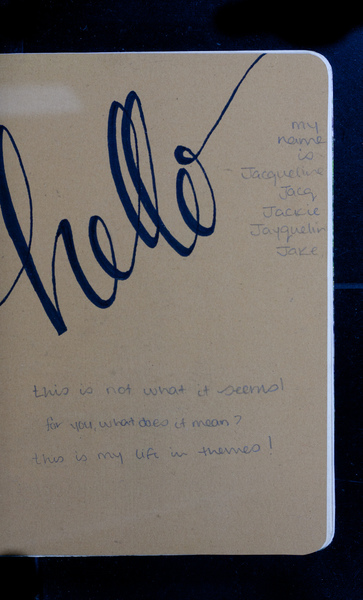 hello
my
name
is
Jacqueline
Jacq
Jackie
Jayquelin
Jake,
this is not what it seems!
for you, what does it mean?
this is my life in themes!